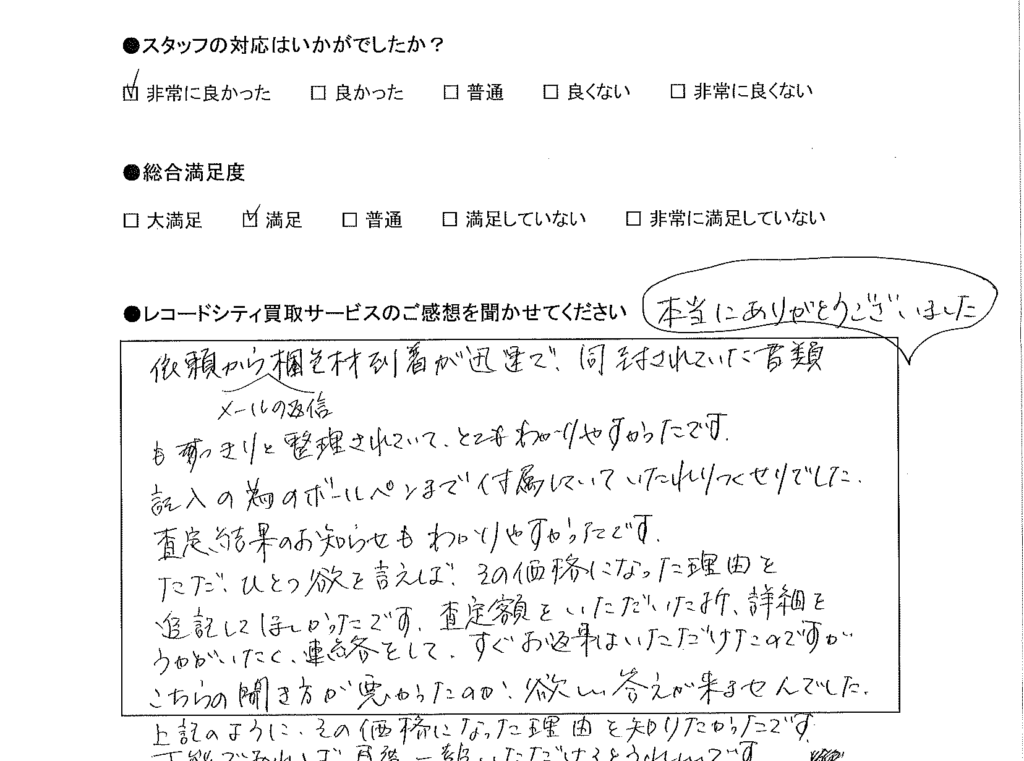 ●スタッフの対応はいかがでしたか？
☑ 非常に良かった □ 良かった □ 普通 □ 良くない □ 非常に良くない
●総合満足度
□ 大満足 ☑ 満足 □ 普通 □ 満足していない □ 非常に満足していない
●レコードシティ買取サービスのご感想を聞かせてください
本当にありがとうございました
依頼から梱包材到着が迅速で、同封されていた書類
メールの返信
もすっきりと整理されていて、とてもわかりやすかったです。
記入の為のボールペンまで付属していていたれりつくせりでした。
査定結果のお知らせもわかりやすかったです。
ただ、ひとつ欲を言えば、その価格になった理由を
追記してほしかったです。査定額をいただいた折、詳細を
うかがいたく、連絡をして、すぐお返事はいただけたのですが
こちらの聞き方が悪かったのか、欲しい答えが来ませんでした。
上記のように、その価格になった理由を知りたかったです。